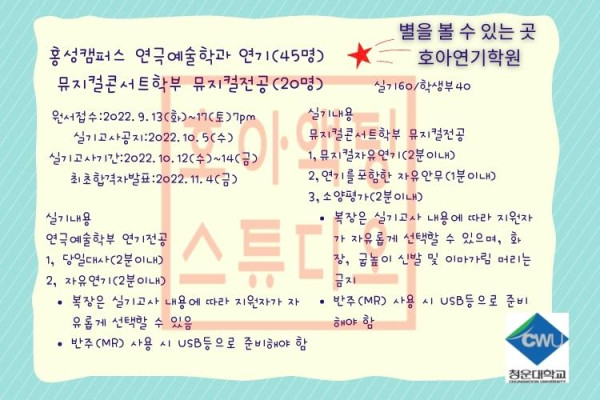 별을 볼 수 있는 곳
호아연기학원
홍성캠퍼스 연극예술학과 연기(45명)
뮤지컬콘서트학부 뮤지컬전공(20명)
실기60/학생부40
원서접수:2022. 9.13(화)~17(토)7pm
실기고사공지:2022.10.5(수)
실기고사기간:2022.10.12(수)~14(금)
최초합격자발표:2022.11.4(금)
실기내용
연극예술학부 연기전공
1, 당일대사(2분이내)
2, 자유연기(2분이내)
• 복장은 실기고사 내용에 따라 지원자가 자
유롭게 선택할 수 있음
• 반주(MR) 사용 시 USB등으로 준비해야 함
실기내용
뮤지컬콘서트학부 뮤지컬전공
1, 뮤지컬자유연기(2분이내)
2,연기를 포함한 자유안무(1분이내)
3,소양평가(2분이내)
• 복장은 실기고사 내용에 따라 지원자
가 자유롭게 선택할 수 있으며, 화
장, 굽높이 신발 및 이마가림 머리는
금지
• 반주(MR) 사용 시 USB등으로 준비
해야 함
호아액팅
스튜디오
CWU
청운대학교
CHUNGWOON UNIVERSITY